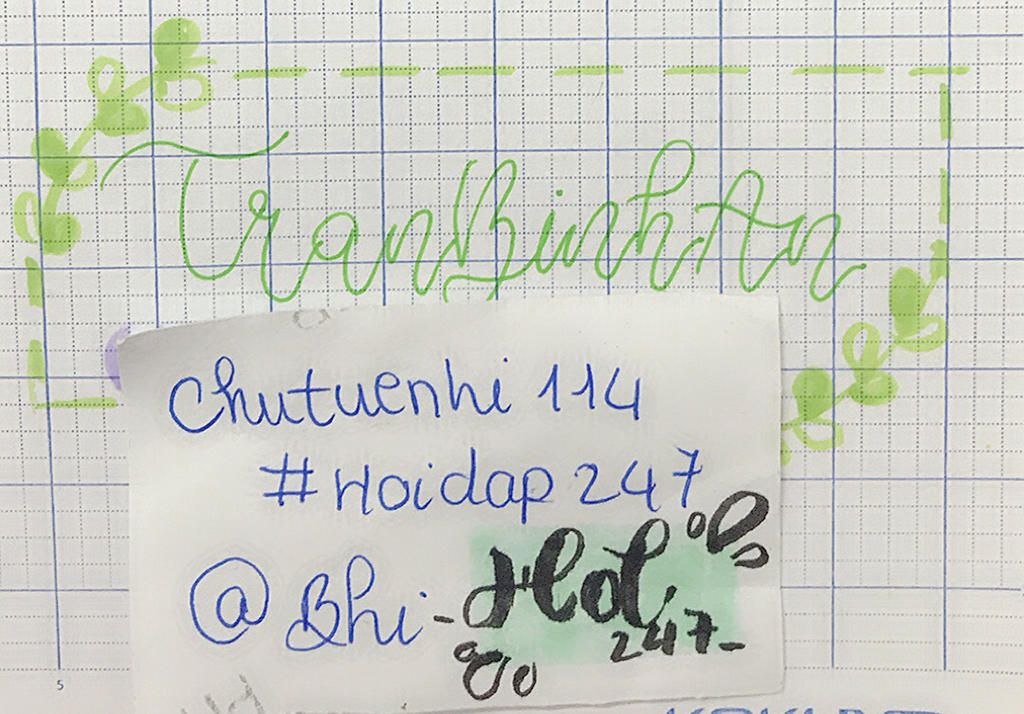 TranBinhAn
Chutuenhi 114
#Hoidap247
@Bhi-Hoi
247-
5